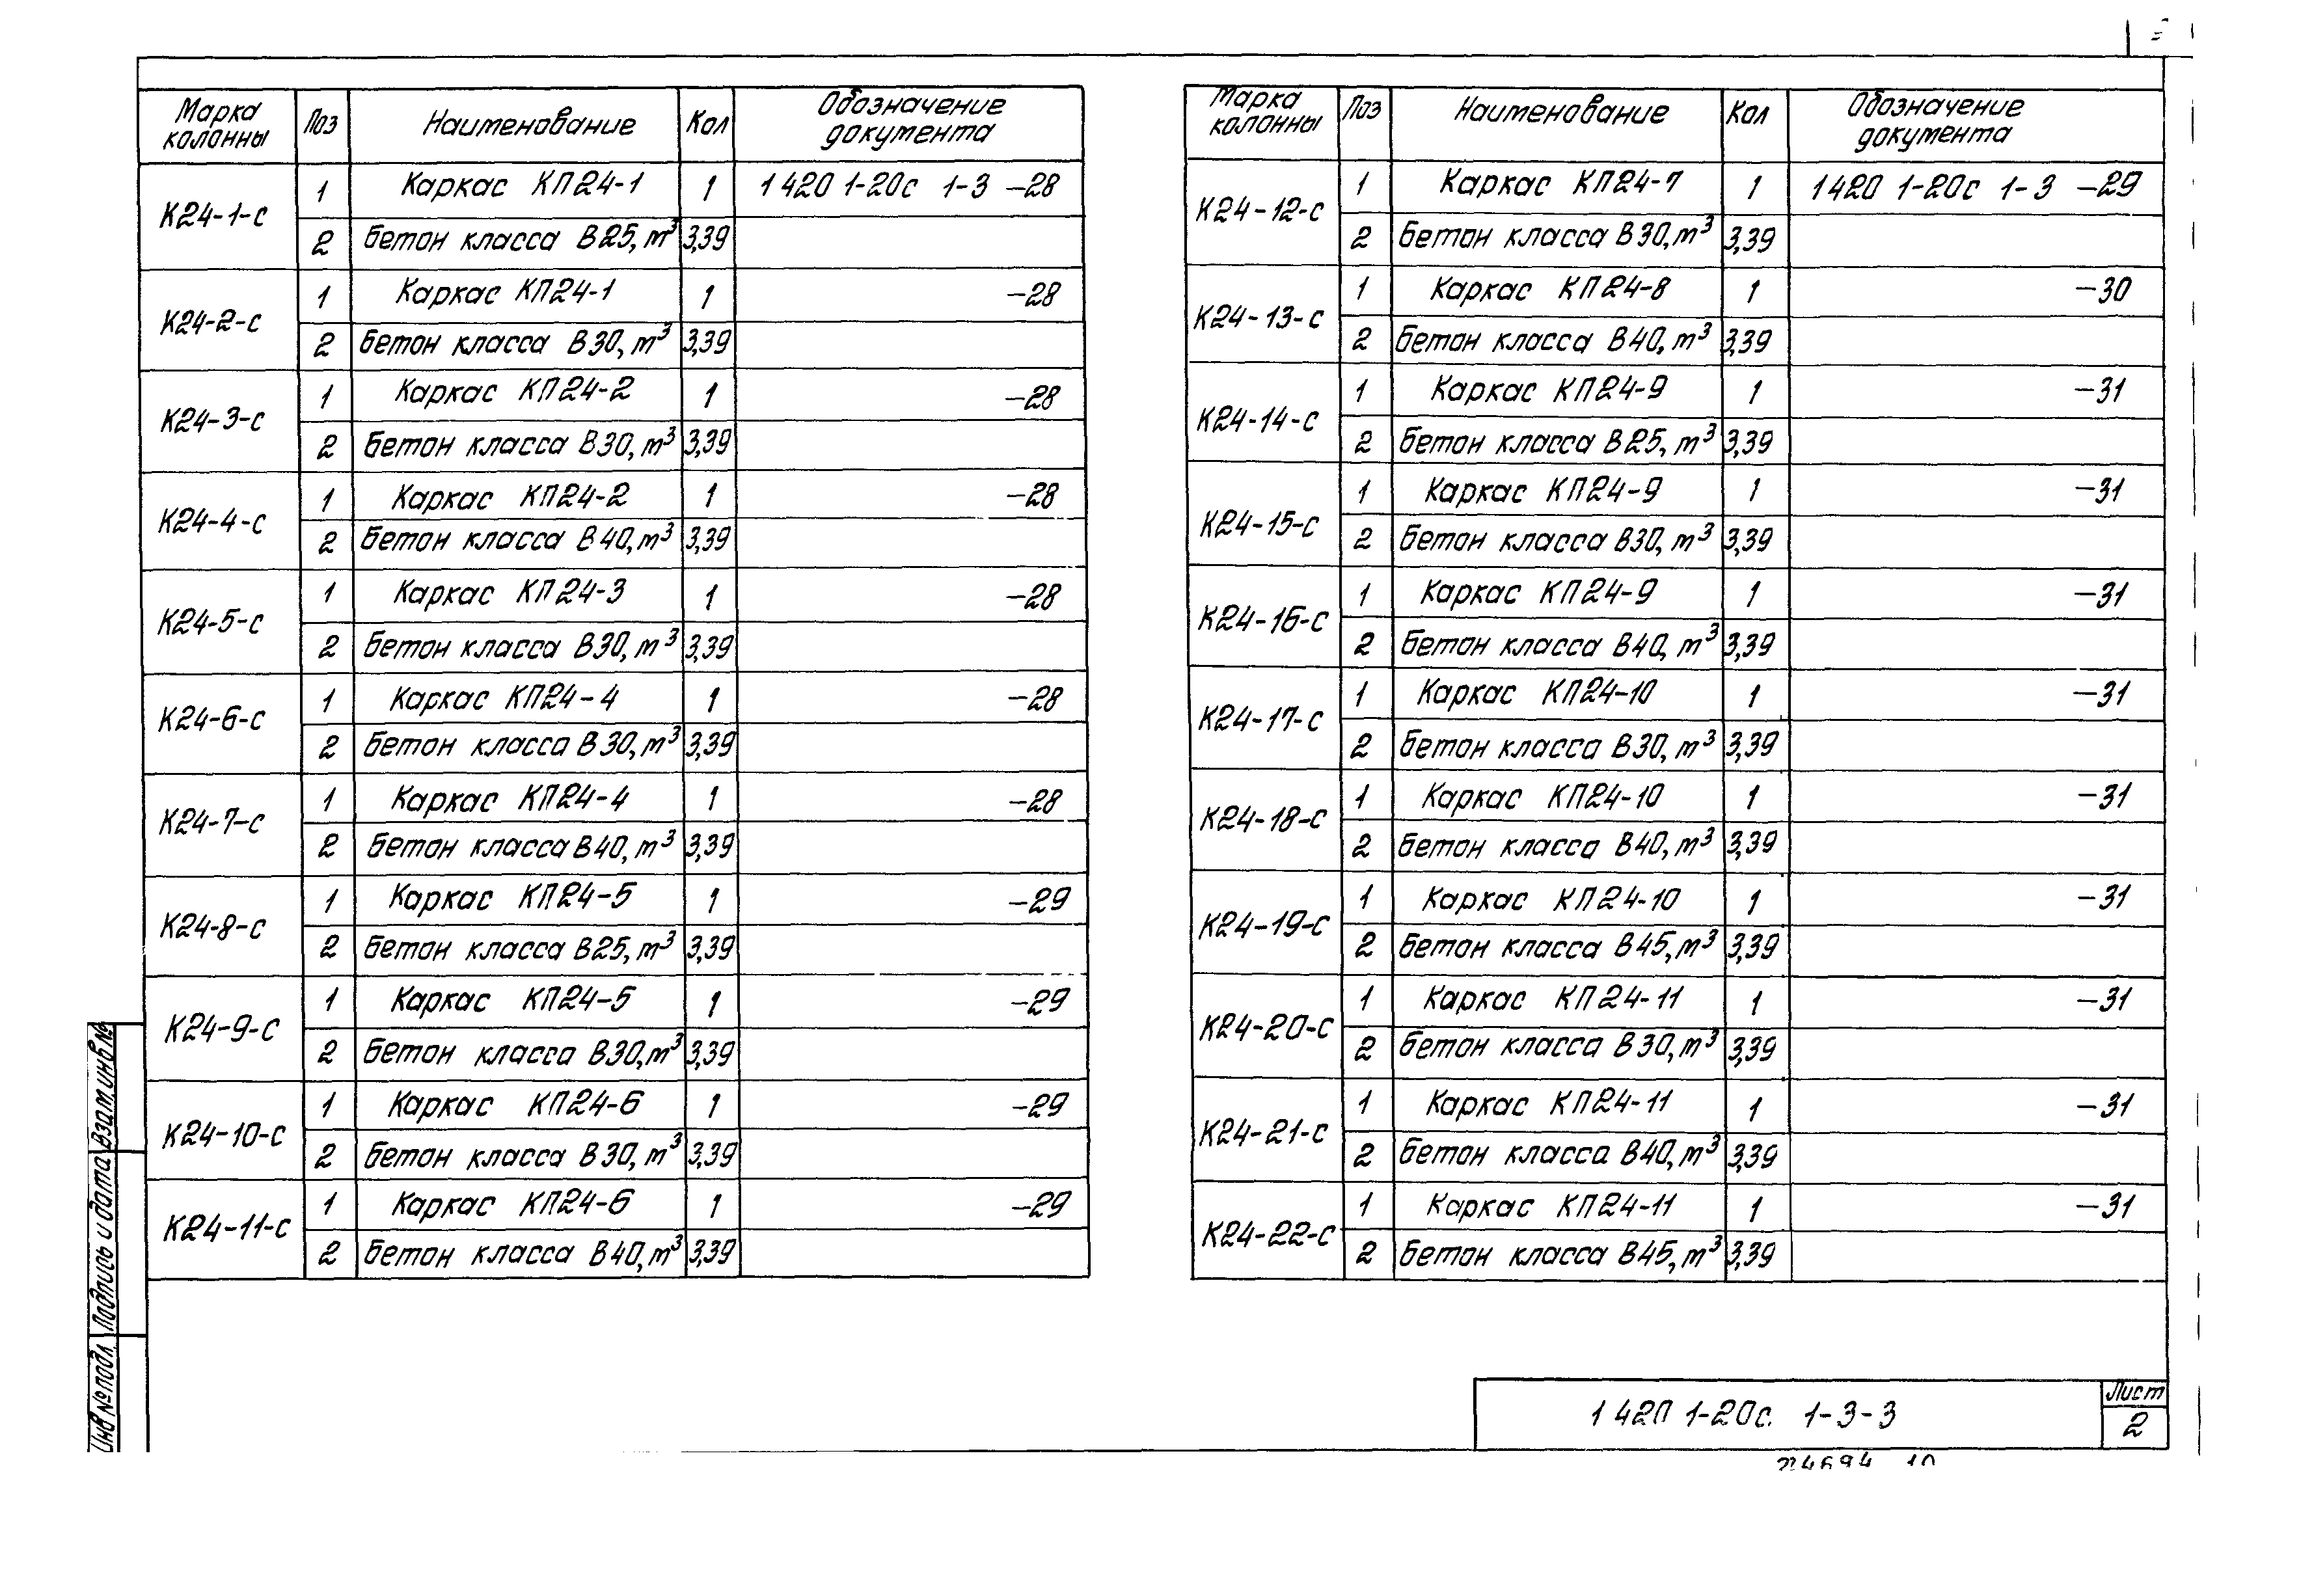 Марка колонны Поз Наименование Кол Обозначение документа
К24-1-с 1 Каркас КП24-1 1 1 420 1-20с 1-3 -28
2 бетон класса В25, м³ 3,39
К24-2-с 1 Каркас КП24-1 1 -28
2 бетон класса В30, м³ 3,39
К24-3-с 1 Каркас КП24-2 1 -28
2 бетон класса В30, м³ 3,39
К24-4-с 1 Каркас КП24-2 1 -28
2 бетон класса В40, м³ 3,39
К24-5-с 1 Каркас КП24-3 1 -28
2 бетон класса В30, м³ 3,39
К24-6-с 1 Каркас КП24-4 1 -28
2 бетон класса В30, м³ 3,39
К24-7-с 1 Каркас КП24-4 1 -28
2 бетон класса В40, м³ 3,39
К24-8-с 1 Каркас КП24-5 1 -29
2 бетон класса В25, м³ 3,39
К24-9-с 1 Каркас КП24-5 1 -29
2 бетон класса В30, м³ 3,39
К24-10-с 1 Каркас КП24-6 1 -29
2 бетон класса В30, м³ 3,39
К24-11-с 1 Каркас КП24-6 1 -29
2 бетон класса В40, м³ 3,39
Марка колонны Поз Наименование Кол Обозначение документа
К24-12-с 1 Каркас КП24-7 1 1 420 1-20с 1-3 -29
2 бетон класса В30, м³ 3,39
К24-13-с 1 Каркас КП24-8 1 -30
2 бетон класса В40, м³ 3,39
К24-14-с 1 Каркас КП24-9 1 -31
2 бетон класса В25, м³ 3,39
К24-15-с 1 Каркас КП24-9 1 -31
2 бетон класса В30, м³ 3,39
К24-16-с 1 Каркас КП24-9 1 -31
2 бетон класса В40, м³ 3,39
К24-17-с 1 Каркас КП24-10 1 -31
2 бетон класса В30, м³ 3,39
К24-18-с 1 Каркас КП24-10 1 -31
2 бетон класса В40, м³ 3,39
К24-19-с 1 Каркас КП24-10 1 -31
2 бетон класса В45, м³ 3,39
К24-20-с 1 Каркас КП24-11 1 -31
2 бетон класса В30, м³ 3,39
К24-21-с 1 Каркас КП24-11 1 -31
2 бетон класса В40, м³ 3,39
К24-22-с 1 Каркас КП24-11 1 -31
2 бетон класса В45, м³ 3,39
Инв № подл. Подпись и дата Взам. инв №
1 420 1-20с. 1-3-3
Лист
2
24694 10